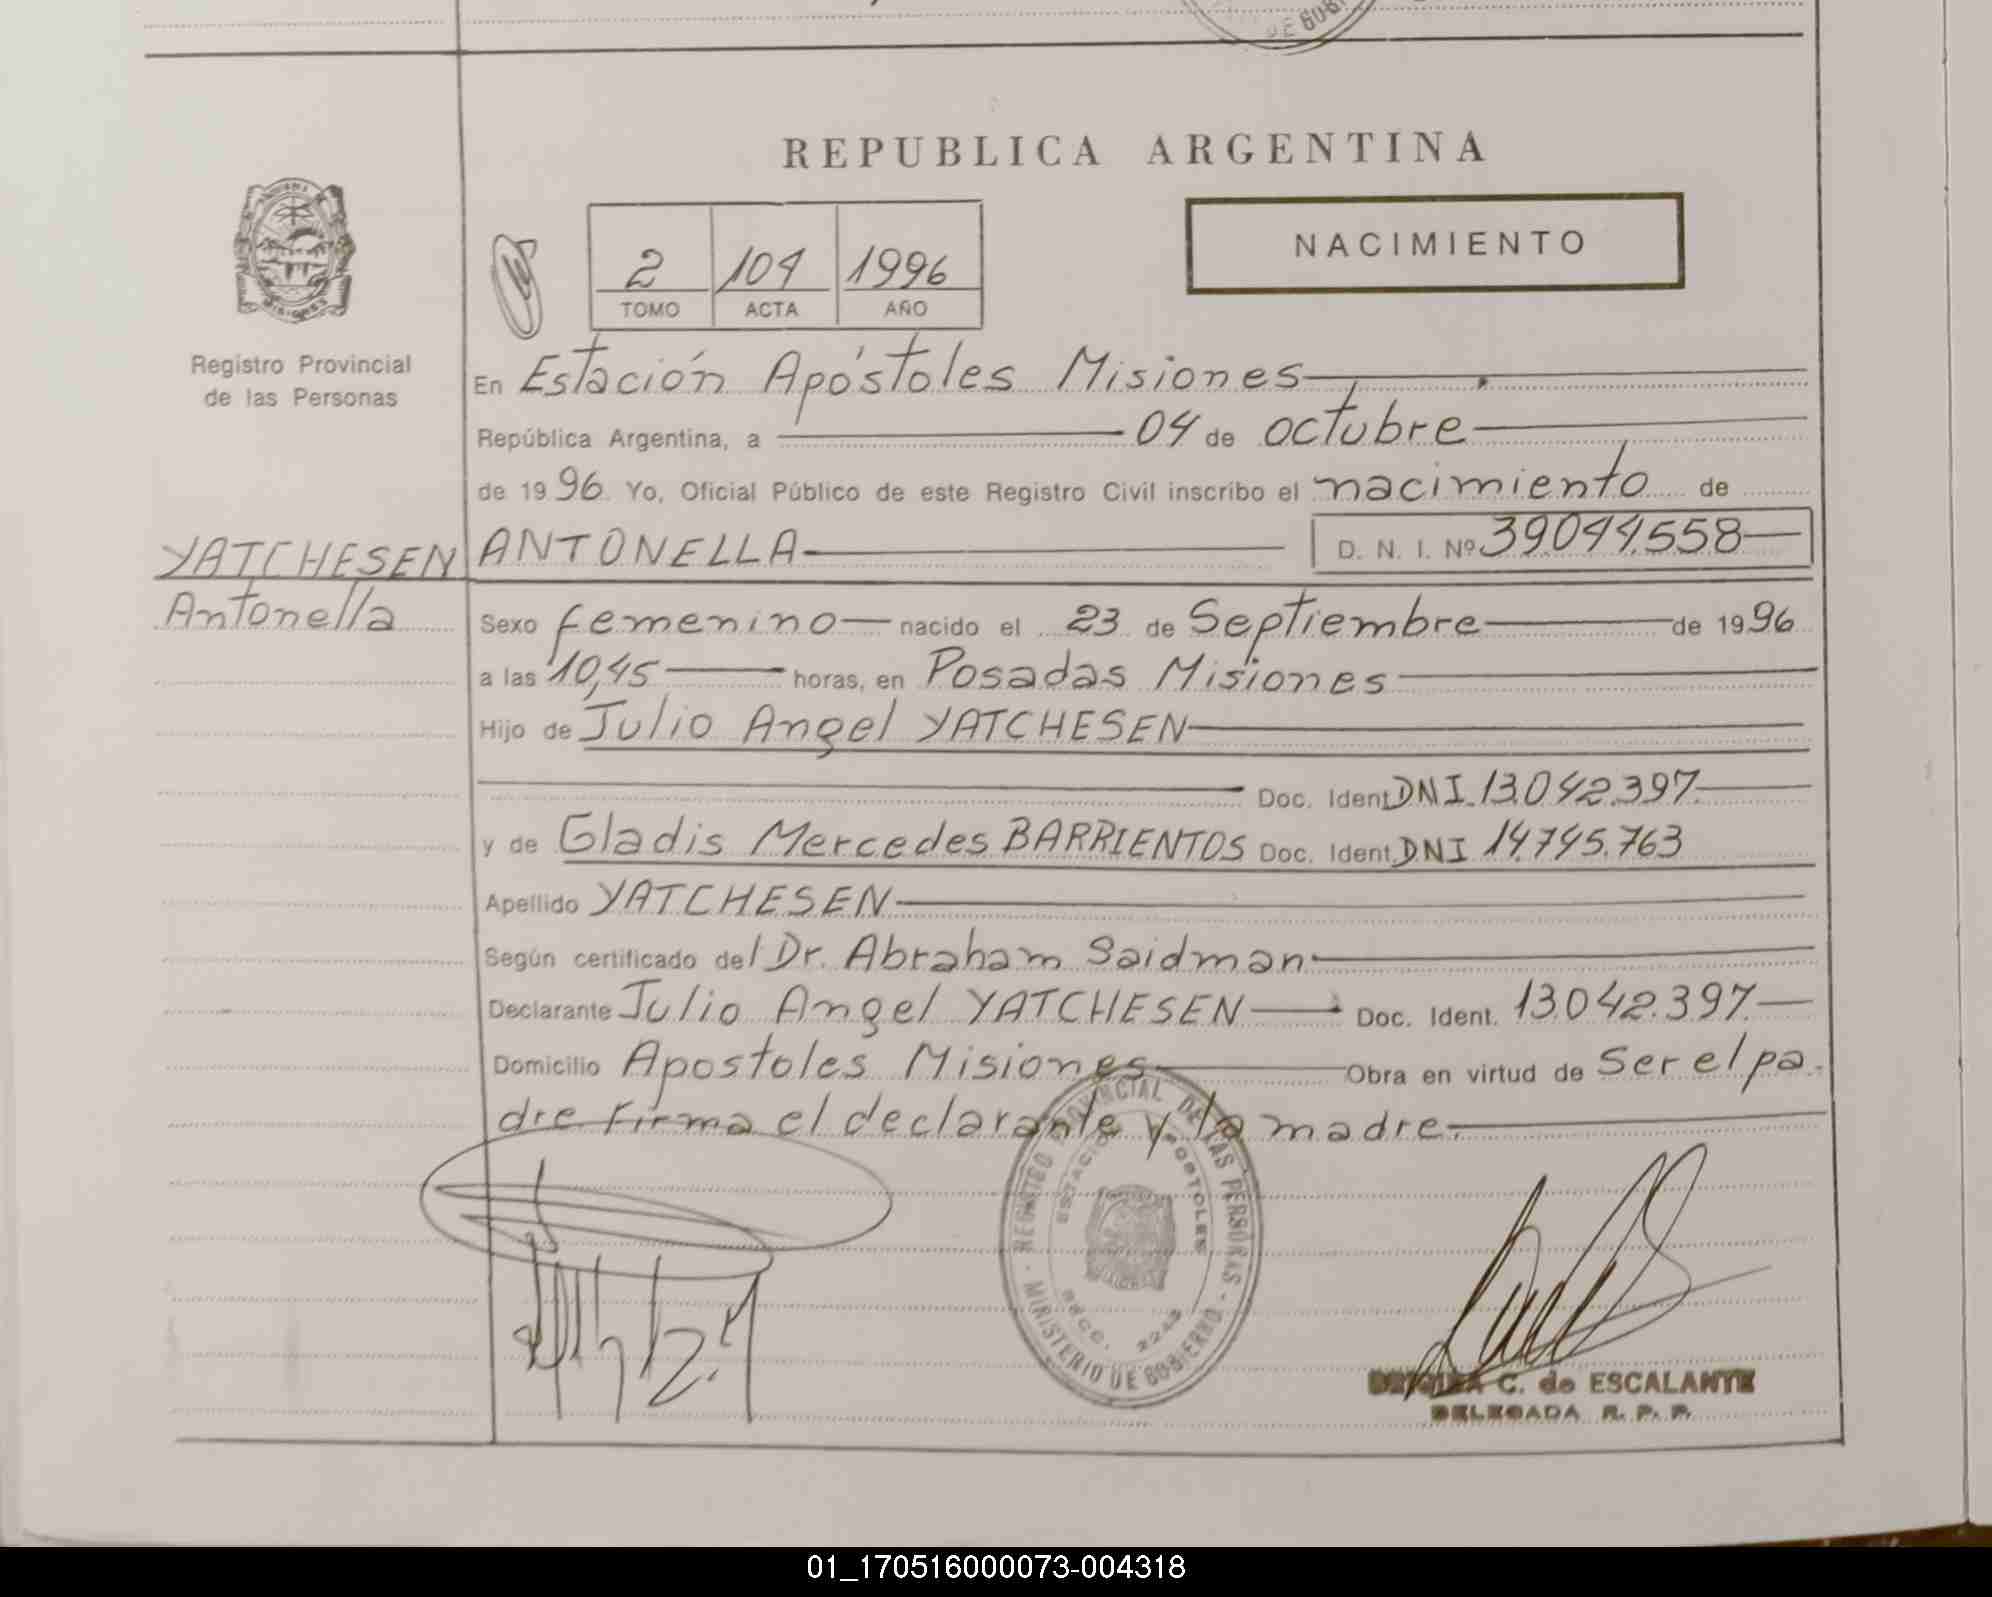 DE GOBI
REPUBLICA ARGENTINA
NACIMIENTO
2 104 1996
TOMO ACTA AÑO
Registro Provincial
de las Personas
En Estación Apóstoles Misiones
República Argentina, a 04 de octubre
de 1996 Yo, Oficial Público de este Registro Civil inscribo el nacimiento de
YATCHESEN ANTONELLA D. N. I. Nº 39.044.558
Antonella
Sexo femenino nacido el 23 de Septiembre de 1996
a las 10,45 horas, en Posadas Misiones
Hijo de Julio Angel YATCHESEN
Doc. Ident. DNI. 13.042.397.
y de Gladis Mercedes BARRIENTOS Doc. Ident. DNI 14.745.763
Apellido YATCHESEN
Según certificado del Dr. Abraham Saidman
Declarante Julio Angel YATCHESEN Doc. Ident. 13.042.397.
Domicilio Apostoles Misiones Obra en virtud de Ser el pa-
dre firma el declarante y la madre.
REGISTRO PROVINCIAL DE LAS PERSONAS - MINISTERIO DE GOBIERNO -
ESTACION APOSTOLES
SECC. 2243
C. de ESCALANTE
DELEGADA R. P. P.
01_170516000073-004318